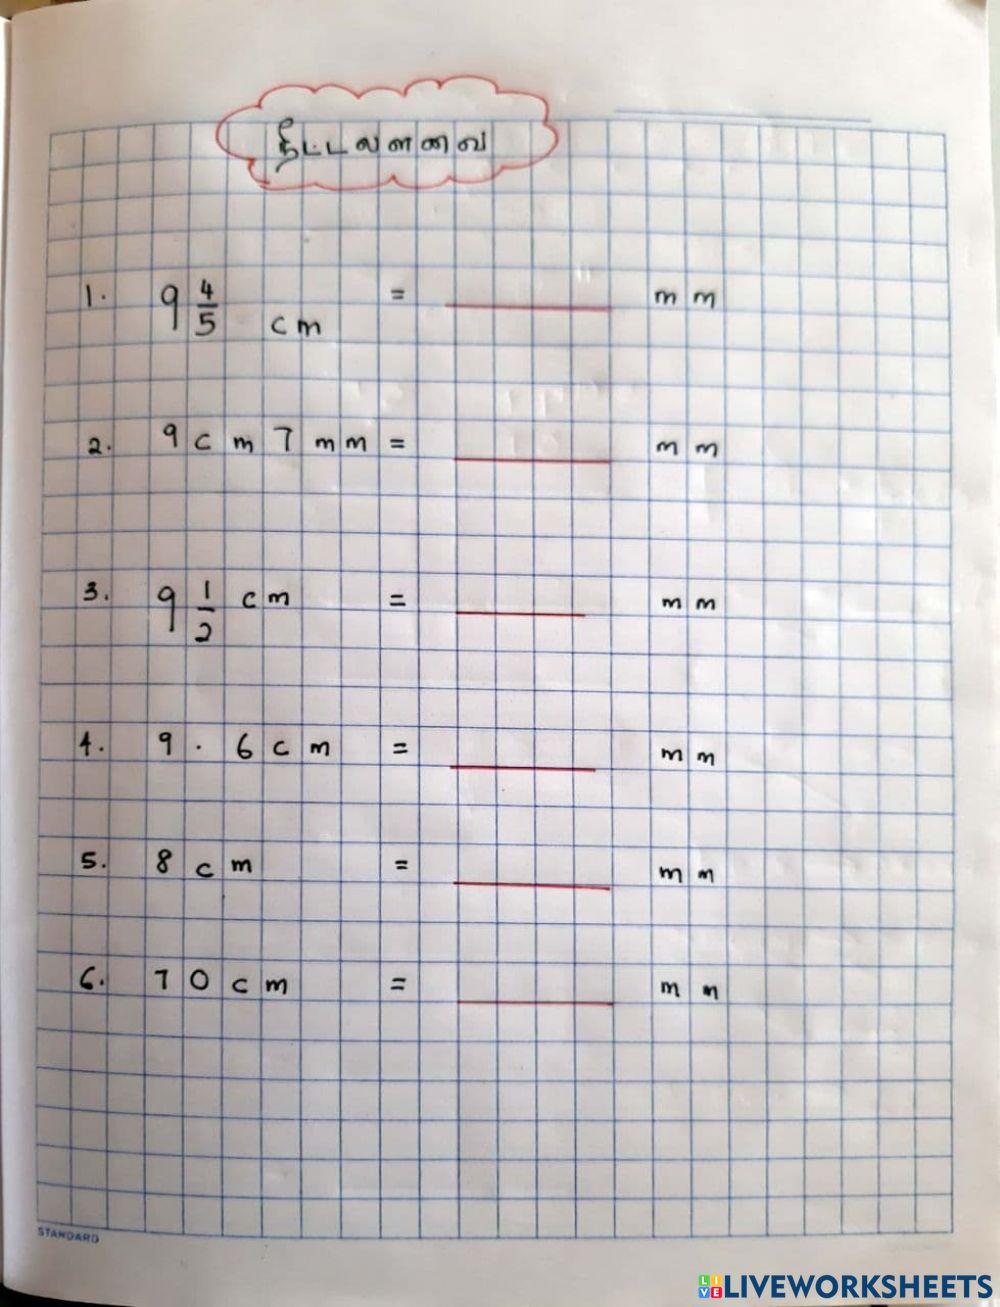 நீட்டலளவை
1. 9 4/5 cm = ______ mm
2. 9cm 7mm = ______ mm
3. 9 1/2 cm = ______ mm
4. 9.6cm = ______ mm
5. 8cm = ______ mm
6. 70cm = ______ mm
STANDARD
LIVE LIVEWORKSHEETS